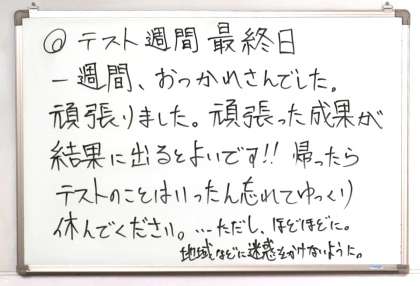 ◎テスト週間 最終日
一週間、おつかれさんでした。
頑張りました。頑張った成果が
結果に出るとよいです!! 帰ったら
テストのことはいったん忘れてゆっくり
休んでください。…ただし、ほどほどに。
地域などに迷惑をかけないように。